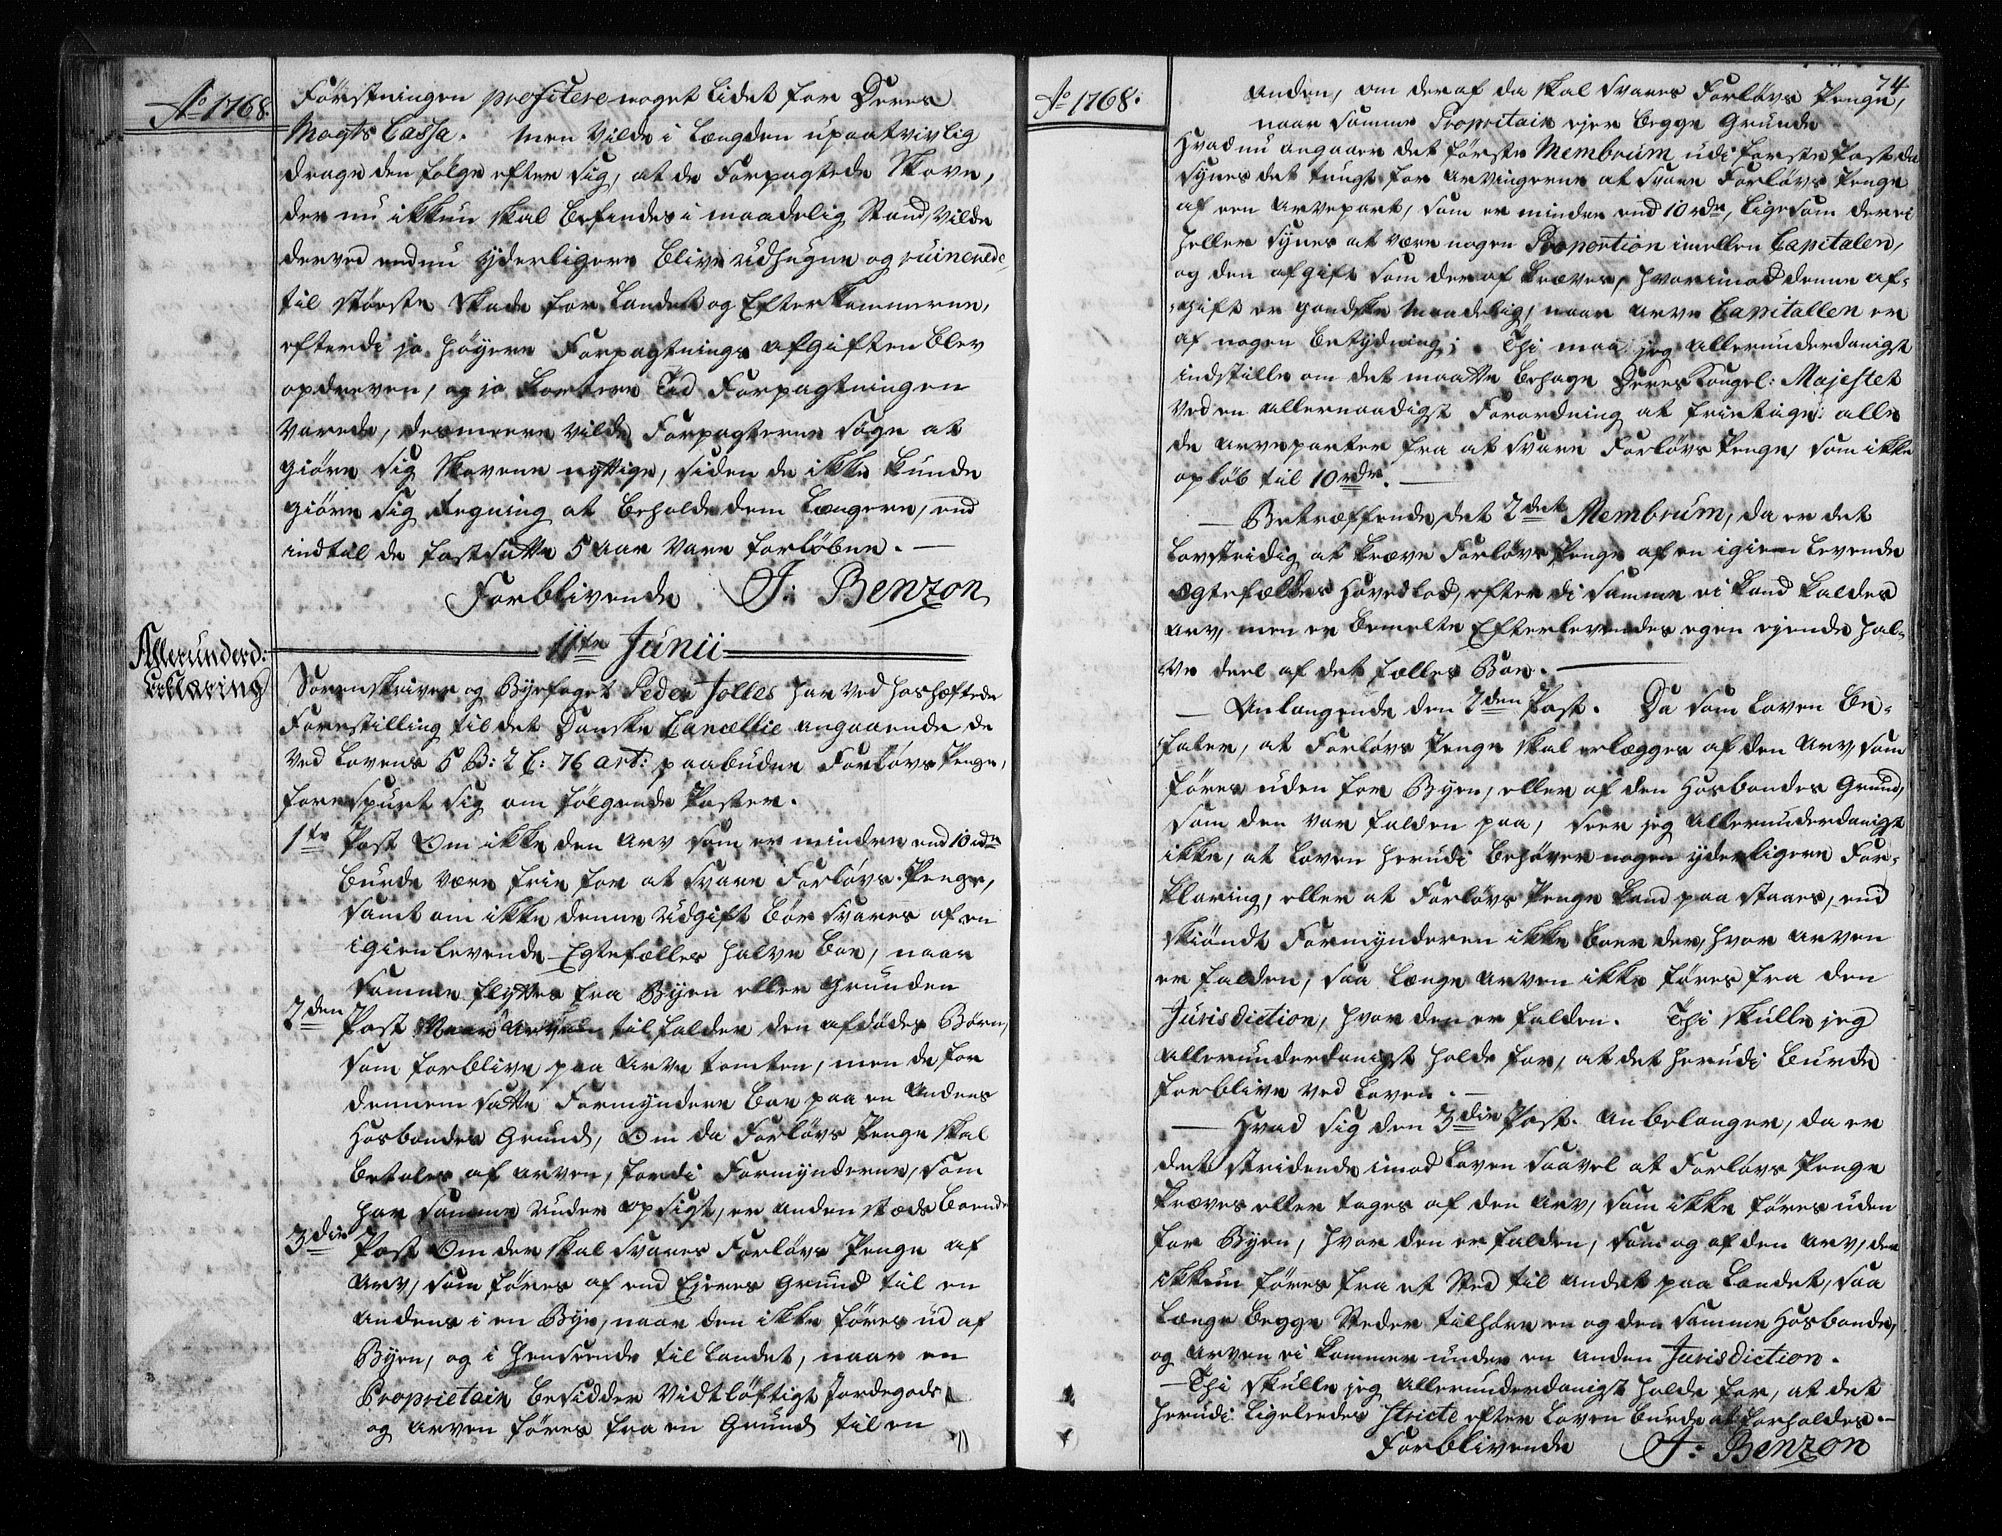 Ao 1768.
Förstningen profitere noget lidet for Deres
Mayts Cassa. Men vilde i Længden upaatvivlig
drage den følge efter sig, at de Forpagtede Skove,
der nu ikkun skal befindes i maadelig Stand, vilde
derved endnu yderligere blive udhugne og ruinerede,
til största Skade for Landet og Efterkommerne,
efterdi jo höyere Forpagtnings Afgiften blev
opdreven, og jo kortere Tid Forpagtningen
varede, desmeere vilde Forpagterne søge at
giöre sig Skovene nyttige, siden de ikke kunde
giöre sig Regning at beholde dem længere, end
indtil de fastsatte 5 Aar vare forløbne.
Forblivende J: Benzon
11te Junii
Allerunderd:
Erklæring
Sorenskriver og Byefoget Peder Tolles har ved hoshæftede
Forestilling til det Danske Cancellie angaaende de
ved Lovens 5 B: 2 C: 76 art: paabudne Forløvs Penge,
forespurt sig om følgende Poster.
1te Post Om ikke den Arv som er mindre end 10 rdr
burde være frie for at svare Forløvs Penge,
samt om ikke denne Udgift bör svares af en
igienlevende Egtefælles halve Boe, naar
samme flyttes fra Byen eller Grunden
2den Post Naar Arven tilfalder den afdødes Börn,
som forblive paa Arve tomten, men de for
dennem satte Formyndere boe paa en Andens
Hosbondes Grund, Om da Forløvs Penge skal
betales af Arven, fordi Formynderne, som
har samme under opsigt, er anden stæds boende
3die Post Om der skal svares Forløvs Penge af
Arv, som føres af end Ejeres Grund til en
Andens i en Bye, naar den ikke føres ud af
Byen, og i Henseende til Landet, naar en
Proprietair besidder vidtløftigt Jordegods
og Arven føres fra en Grund til en
74
Ao 1768.
anden, om deraf da skal svares Forløvs Penge,
naar samme Propritair ejer begge Grunde
Hvad nu angaaer det første Membrum udi første Post da
synes det tungt for Arvingerne at svare Forløvs Penge
af een Arvepart, som er mindre end 10 rdr, ligesom der ei
heller synes at være nogen Proportion imellen Capitalen,
og den afgift som deraf kræves, hvorimod denne af-
gift er gandske maadelig, naar Arve Capitallen er
af nogen betydning; Thi maa jeg allerunderdanigst
indstille om det maatte behage Deres Kongel: Majestet
ved en allernaadigst Forordning at frietage alle
de Arveparter fra at svare Forløvs Penge, som ikke
opløb til 10 rdr.
Betræffende det 2det Membrum, da er det
lovstridig at kræve Forløvs Penge af en igien levende
Egtefælles Hovedlod, efterdi samme ei kand kaldes
Arv, men er bemelte Efterlevendes egen ejende hal-
ve deel af det fælles Boe.
Anlangende den 2den Post. Da som Loven be-
faler, at Forløvs Penge skal erlægges af den Arv, som
føres uden for Byen, eller af den Hosbondes Grund,
som den var falden paa, seer jeg allerunderdanigst
ikke, at Loven herudi behøver nogen yderligere For-
klaring, eller at Forløvs Penge kand paa staaes, end
skiöndt Formynderen ikke boer der, hvor Arven
er falden, saa længe Arven ikke føres fra den
Jurisdiction, hvor den er falden. Thi skulle jeg
allerunderdanigst holde for, at det herudi burde
forblive ved Loven.
Hvad sig den 3die Post. anbelanger, da er
det stridende imod Loven saavel at Forløvs Penge
kræves eller tages af den Arv, som ikke føres uden
for Byen, hvor den er falden, som og af den Arv, der
ikkun føres fra et Sted til andet paa Landet, saa
længe begge Steder tilhøre en og den samme Hosbonde,
og Arven ei kommer under en anden Jurisdiction.
Thi skulle jeg allerunderdanigst holde for, at det
herudi ligeledes stricte efter Loven burde at forholdes.
Forblivende J: Benzon